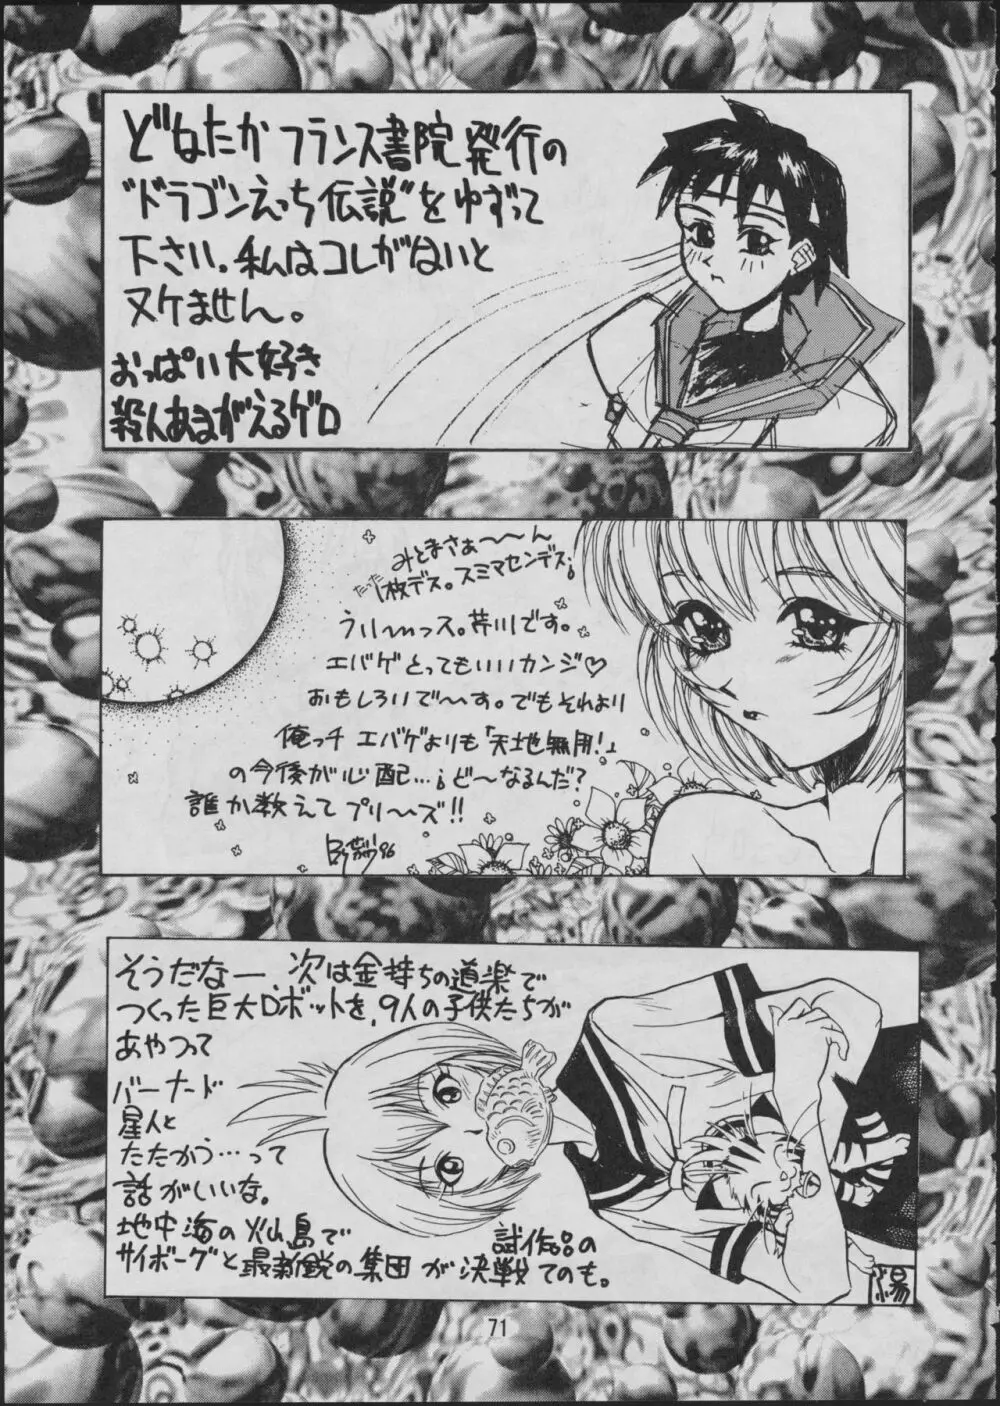 どなたかフランス書院発行の
"ドラゴンえっち伝説"をゆずって
下さい。私はコレがないと
ヌケません。
おっぱい大好き
殺人あまがえるゲロ
みとまさぁ〜〜ん
たった1枚デス。スミマセンデス;
うい〜〜っス。芹川です。
エバゲとってもいいカンジ♡
おもしろいで〜す。でもそれより
俺っチ エバゲよりも「天地無用!」
の今後が心配…;ど〜なるんだ?
誰か教えてプリ〜ズ!!
96
そうだなー、次は金持ちの道楽で
つくった巨大ロボットを、9人の子供たちが
あやつって
バーナード
星人と
たたかう…って
話がいいな。
地中海の火山島で
サイボーグと最新鋭の試作品の集団が決戦てのも。
陽
71